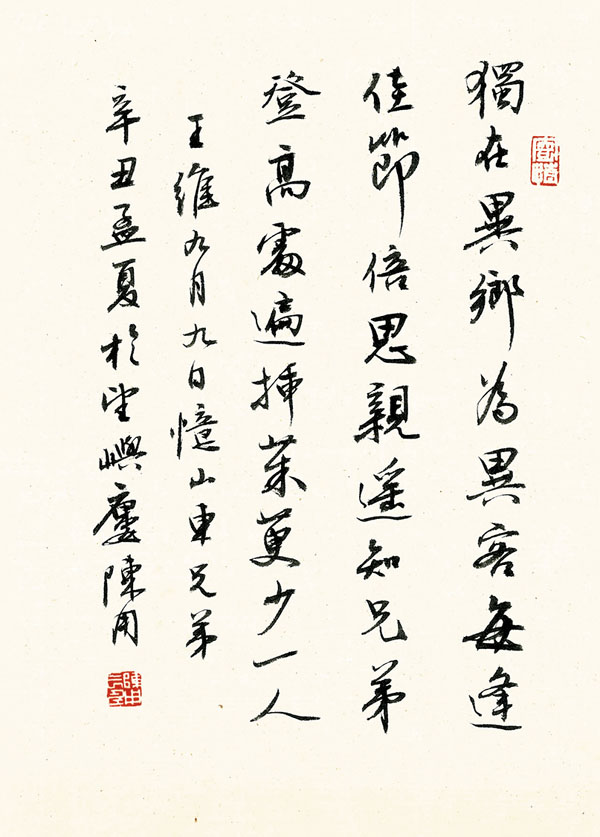 獨在異鄉為異客每逢
佳節倍思親遥知兄弟
登高處遍插茱萸少一人
王維九月九日憶山東兄弟
辛丑孟夏於望嶼廔陳用